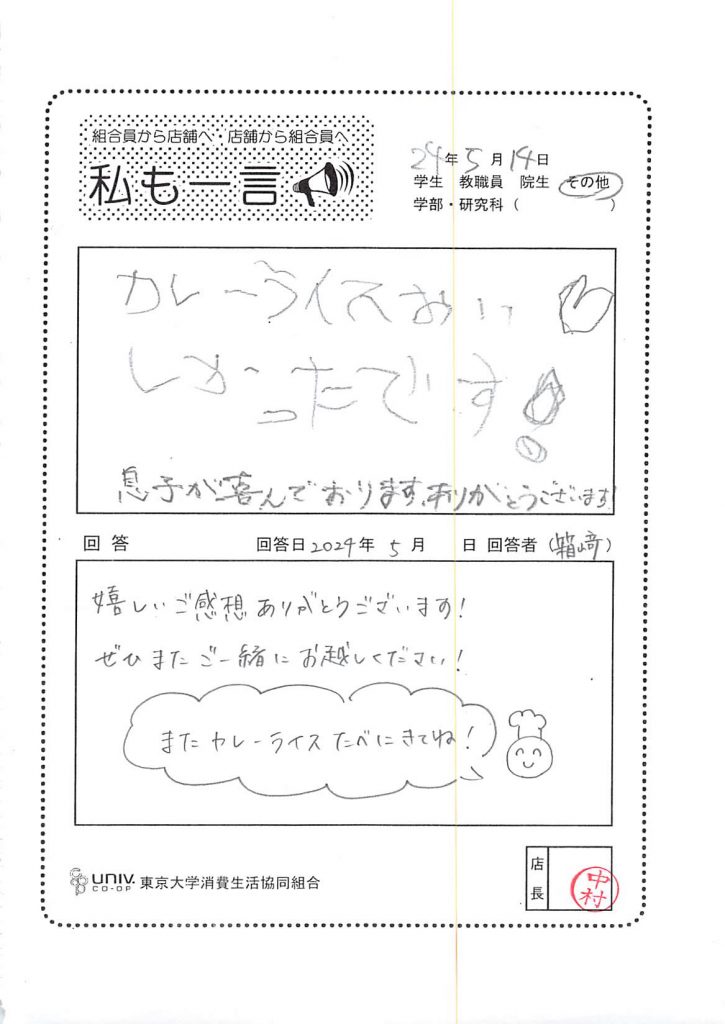 組合員から店舗へ・店舗から組合員へ
私も一言
24年5月14日
学生 教職員 院生 その他
学部・研究科( )
カレーライスおいい
しかったです!
息子が喜んでおります。ありがとうございます!
回答 回答日2024年5月 日 回答者(箱﨑)
嬉しいご感想ありがとうございます!
ぜひまたご一緒にお越しください!
またカレーライスたべにきてね!
UNIV.
CO-OP
東京大学消費生活協同組合
店長
中村